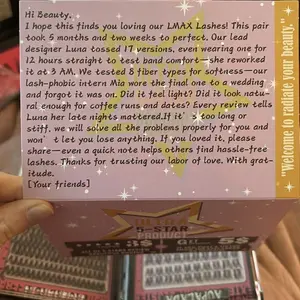 Hi Beauty,
I hope this finds you loving our LMAX Lashes! This pair
took 5 months and two weeks to perfect. Our lead
designer Luna tossed 17 versions, even wearing one for
12 hours straight to test band comfort—she reworked
it at 3 AM. We tested 8 fiber types for softness—our
lash-phobic intern Mia wore the final one to a wedding
and forgot it was on. Did it feel light? Did it look nat-
ural enough for coffee runs and dates? Every review tells
Luna her late nights mattered.If it's too long or
stiff, we will solve all the problems properly for you and
won't let you lose anything. If you loved it, please
share—even a quick note helps others find hassle-free
lashes. Thanks for trusting our labor of love. With grat-
itude,
[Your friends]
"Welcome to radiate your beauty."
5-STAR
PRODUCT
3$
5$